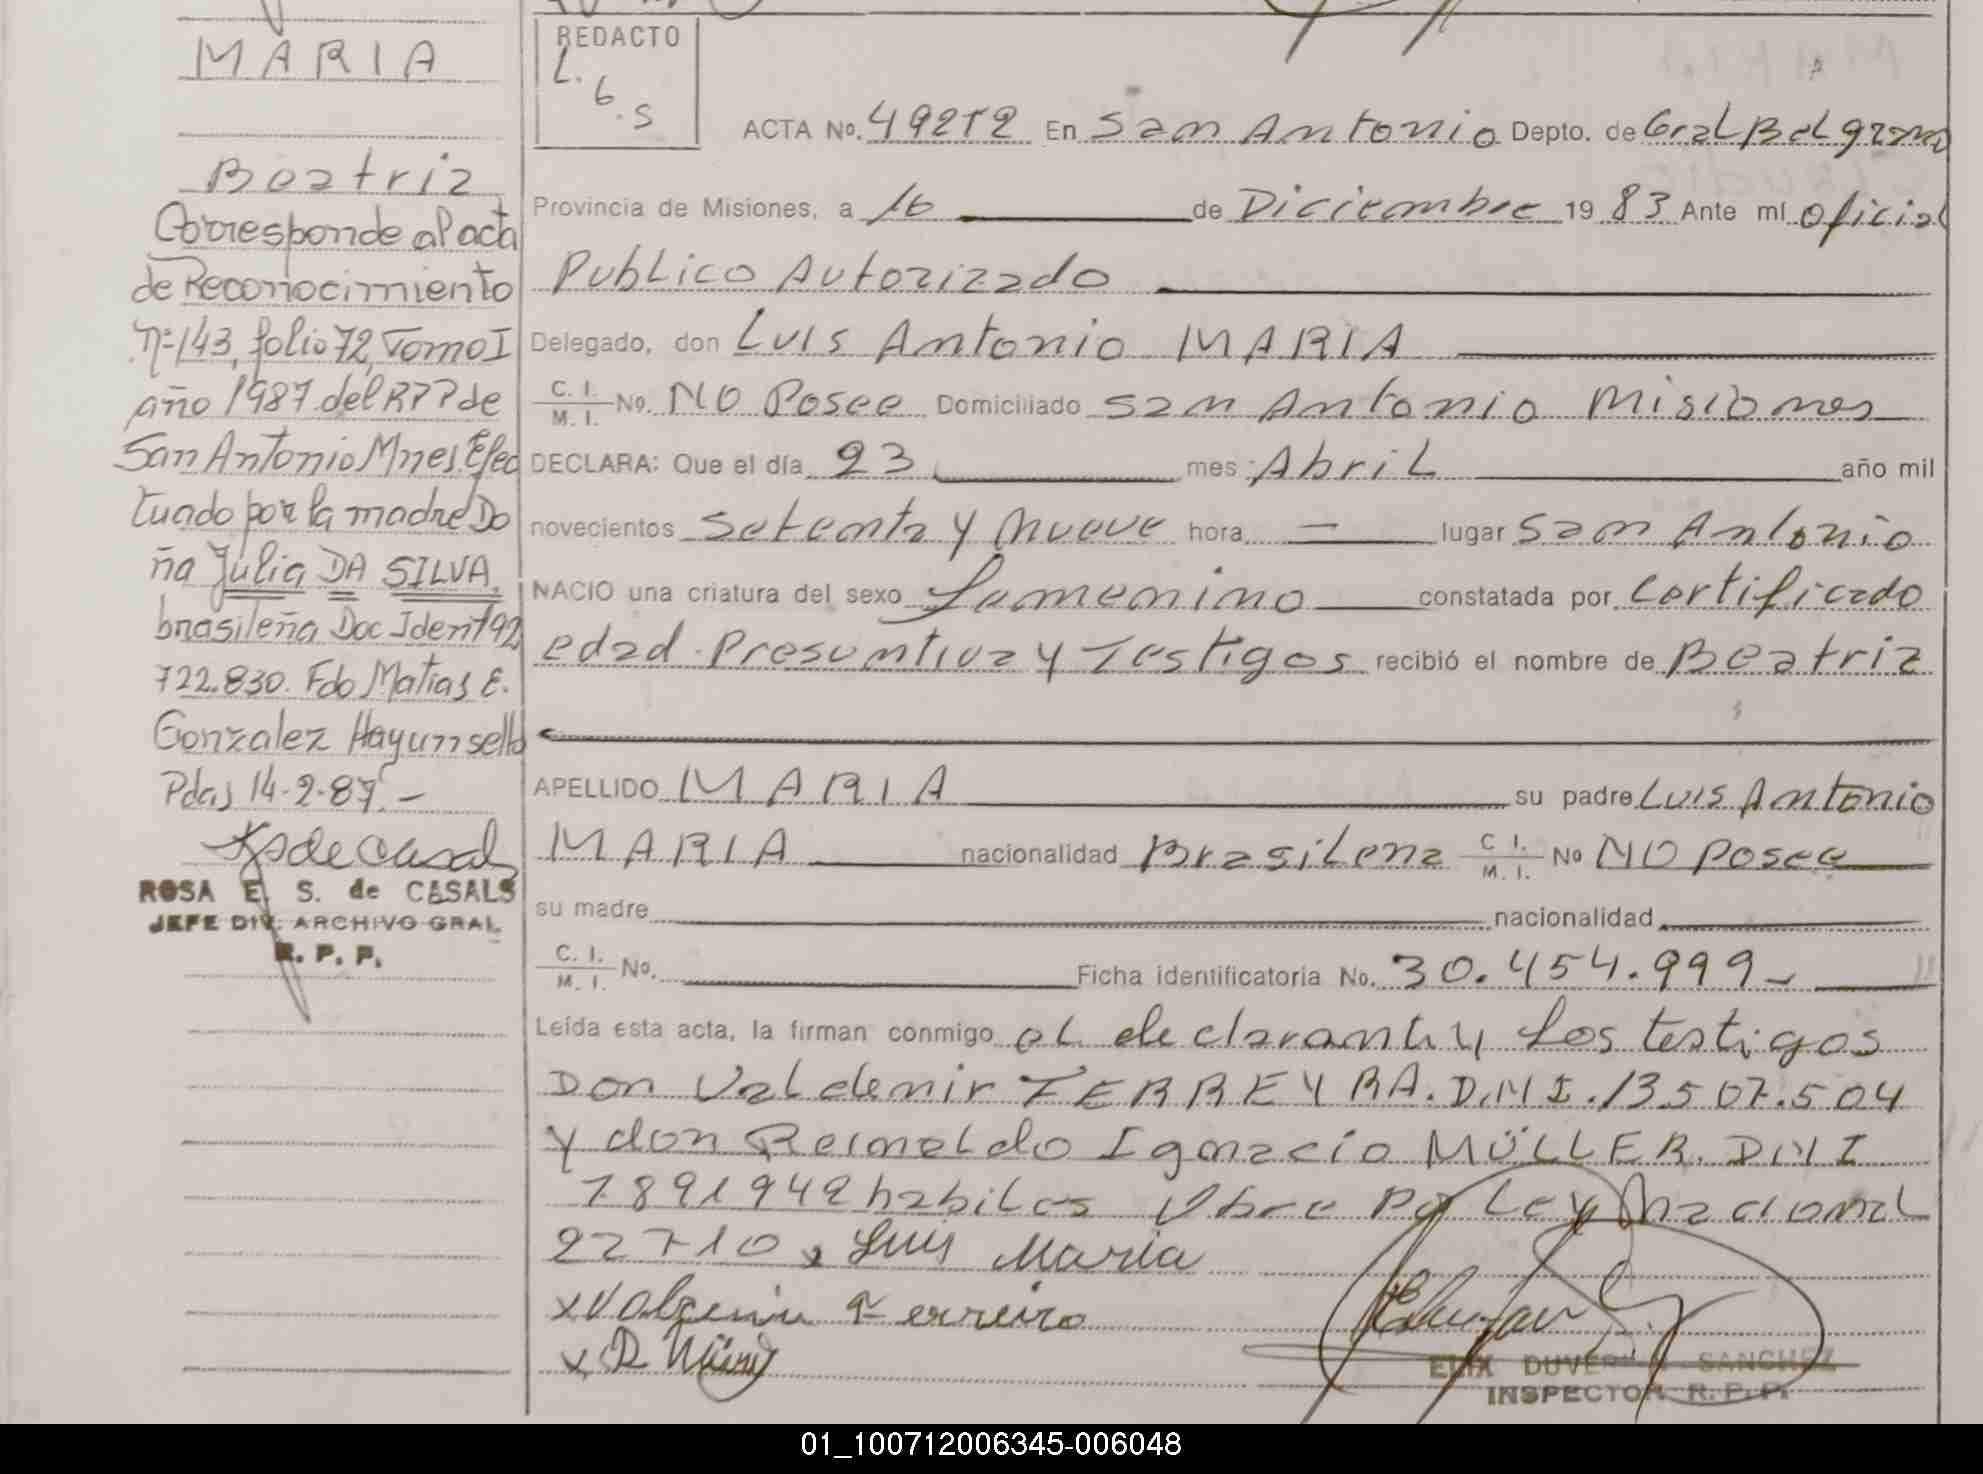 MARIA
Beatriz
Corresponde al acta
de Reconocimiento
nº 143, folio 72, Tomo I
año 1987 del RPP de
San Antonio Mnes. Efec
tuado por la madre Do
ña Julia DA SILVA,
brasileña Doc Ident 92
722.830. Fdo Matias E.
Gonzalez Hay un sello
Pdas 14-2-87.-
RSdeCasals
ROSA E. S. de CASALS
JEFE DIV. ARCHIVO GRAL.
R. P. P.
REDACTO
L.
6
.S
ACTA No. 492T2 En San Antonio Depto. de Gral Belgrano
Provincia de Misiones, a 16 de Diciembre 19 83 Ante mí oficial
Publico Autorizado
Delegado, don Luis Antonio MARIA
C. I. M. I. No. NO Posee Domiciliado San Antonio Misiones
DECLARA: Que el día 23 mes Abril año mil
novecientos Setenta y Nueve hora — lugar San Antonio
NACIO una criatura del sexo femenino constatada por Certificado
edad Presuntiva y Testigos recibió el nombre de Beatriz
APELLIDO MARIA su padre Luis Antonio
MARIA nacionalidad Brasilena C I. M. I. No NO Posee
su madre nacionalidad
C. I. M. I. No. Ficha identificatoria No. 30.454.999-
Leída esta acta, la firman conmigo el declarante y los testigos
Don Valdemir FERREYRA. D.N.I. 13.507.504
y don Reinaldo Ignacio MÜLLER. DNI
7891942 habiles Obra por Ley Nacional
22710 x Luis Maria
x Ferreiro
x R
ELIX DUVER SANCHEZ
INSPECTOR R. P. P.
01_100712006345-006048